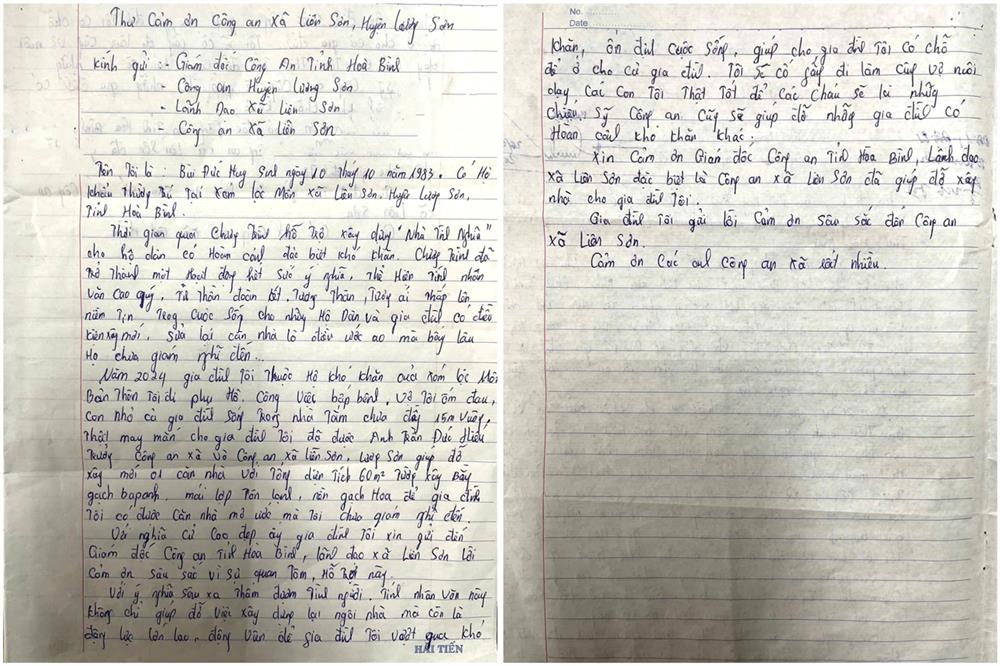 Thư Cảm ơn Công an xã Liên Sơn, Huyện Lương Sơn
Kính gửi: - Giám đốc Công An Tỉnh Hoà Bình
- Công an Huyện Lương Sơn
- Lãnh Đạo Xã Liên Sơn
- Công an xã Liên Sơn
Tên Tôi là: Bùi Đức Huy Sinh ngày 10 tháng 10 năm 1983. Có Hộ
khẩu Thường Trú Tại Xóm Lộc Môn Xã Liên Sơn, Huyện Lương Sơn,
Tỉnh Hoà Bình.
Thời gian qua, Chương Trình Hỗ Trợ xây dựng "Nhà Tình Nghĩa"
cho hộ dân có Hoàn cảnh đặc biệt khó khăn. Chương Trình đã
Trở Thành một Hoạt động hết Sức ý nghĩa, Thể Hiện Tính nhân
văn cao quý, Từ Thần đoàn kết, Tương Thân, Tương ái Thắp lên
niềm Tin Trong Cuộc Sống cho những Hộ Dân và gia đình có điều
kiện xây mới, Sửa lại căn nhà là điều ước ao mà bấy lâu
Họ chưa giám nghĩ đến...
Năm 2024 gia đình Tôi Thuộc Hộ khó khăn của xóm Lộc Môn
Bản Thân Tôi đi phụ Hồ. Công Việc bấp bênh, Vợ Tôi ốm đau,
Con nhỏ cả gia đình Sống Trong nhà Tắm chưa đầy 15m Vuông,
Thật may mắn cho gia đình Tôi đã được Anh Trần Đức Hiếu
Trưởng Công an xã và Công an xã Liên Sơn, Lương Sơn giúp đỡ
xây mới 01 căn nhà với Tổng diện Tích 60m² Tường xây Bằng
gạch bapanh, mái lợp Tôn lạnh, nền gạch Hoa để gia đình
Tôi có được Căn nhà mơ ước mà Tôi chưa giám nghĩ đến
Với nghĩa cử Cao đẹp ấy gia đình Tôi xin gửi đến
Giám đốc Công an Tỉnh Hoà Bình, lãnh đạo xã Liên Sơn Lời
Cảm ơn Sâu Sắc vì Sự quan Tâm, Hỗ Trợ này.
Với ý nghĩa Sâu xa Thấm đượm Tình người. Tính nhân Văn này
Không chỉ giúp đỡ Việc xây dựng lại ngôi nhà mà còn là
động lực lớn lao, động Viên để gia đình Tôi vượt qua khó
HẢI TIẾN
No.
Date
Khăn, ổn định Cuộc Sống, giúp cho gia đình Tôi có chỗ
để ở cho cả gia đình. Tôi Sẽ cố gắng đi làm Cùng Vợ nuôi
dạy Các Con Tôi Thật Tốt để Các cháu Sẽ là những
Chiến Sỹ Công an. Cũng Sẽ giúp đỡ những gia đình có
Hoàn cảnh khó khăn khác.
Xin Cảm ơn Giám đốc Công an Tỉnh Hòa Bình, Lãnh đạo
xã Liên Sơn đặc biệt là Công an xã Liên Sơn đã giúp đỡ xây
nhà cho gia đình Tôi.
Gia đình Tôi gửi lời Cảm ơn Sâu sắc đến Công an
xã Liên Sơn.
Cảm ơn Các anh Công an xã rất nhiều.